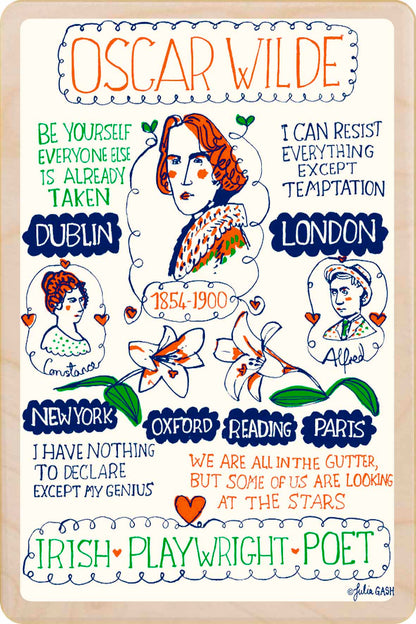 OSCAR WILDE
BE YOURSELF
EVERYONE ELSE
IS ALREADY
TAKEN
I CAN RESIST
EVERYTHING
EXCEPT
TEMPTATION
DUBLIN
LONDON
1854-1900
Constance
Alfred
NEW YORK
OXFORD
READING
PARIS
I HAVE NOTHING
TO DECLARE
EXCEPT MY GENIUS
WE ARE ALL IN THE GUTTER,
BUT SOME OF US ARE LOOKING
AT THE STARS
IRISH PLAYWRIGHT POET
©Julia GASH